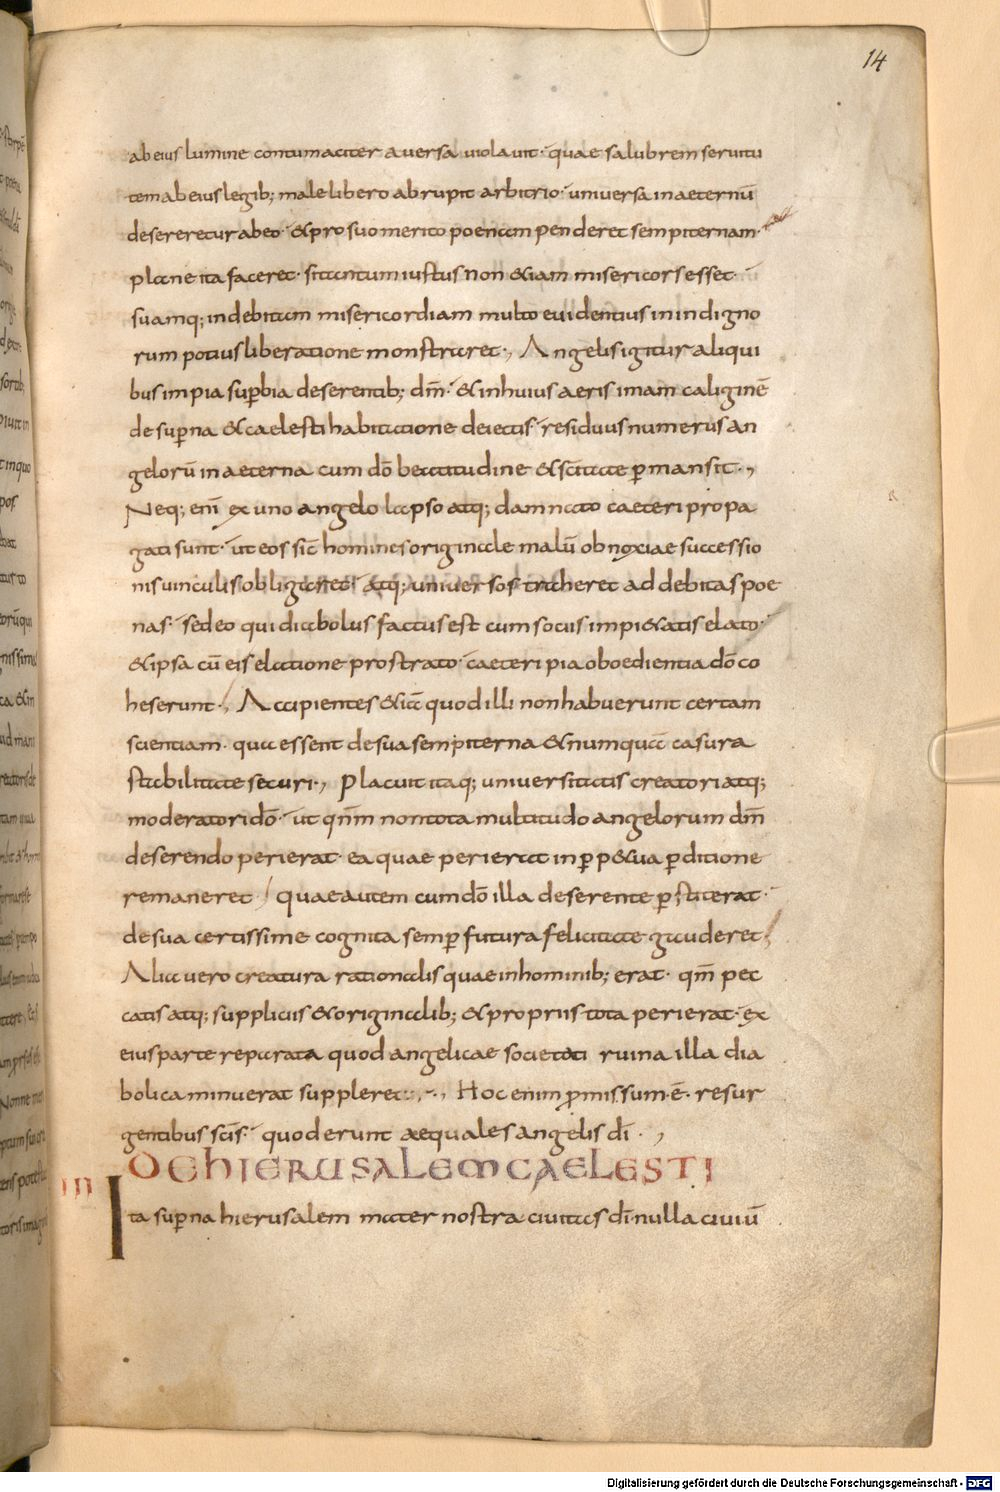 14
ab eius lumine contumaciter aversa violavit· quae salubrem servitu
tem ab eius legib; male libero abrupit arbitrio· universa in aeternū
desereretur ab eo· & pro suo merito poenam penderet sempiternam·
plane ita faceret· si tantum iustus non &iam misericors esset·
suamq; indebitam misericordiam multo evidentius in indigno
rum potius liberatione monstraret·, Angelis igitur aliqui
bus impia sup̄bia deserentib; dm̄· & in huius aeris imam caliginē
de sup̄na & caelesti habitatione deiectis· residuus numerus an
gelorū in aeterna cum dō beatitudine & sc̄itate p̄mansit·,
Neq; eni̅ ex uno angelo lapso atq; damnato caeteri propa
gati sunt· ut eos sic̄ homines originale malū obnoxiae successio
nis vinculis obligaret· atq; universos traheret ad debitas poe
nas· sed eo qui diabolus factus est cum sociis impi&atis elato·
& ipsa cū eis elatione prostrato· caeteri pia oboedientia dō co
heserunt·, Accipientes &iā quod illi non habuerunt certam
scientiam· qua essent de sua sempiterna & numquā casura
stabilitate securi·, Placuit itaq; universitatis creatori atq;
moderatori dō· ut qn̄m non tota multitudo angelorum dm̄
deserendo perierat· ea quae perierat in p̄p&ua p̄ditione
remaneret·, quae autem cum dō illa deserente p̄stiterat·
de sua certissime cognita semp̄ futura felicitate gauderet·,
Alia vero creatura rationalis quae in hominib; erat· qm̄ pec
catis atq; suppliciis & originalib; & propriis tota perierat· ex
eius parte reparata quod angelicae societati ruina illa dia
bolica minuerat suppleret·,·, Hoc enim p̄missum·ē· resur
gentibus scīs· quod erunt aequales angelis dī·,
DE HIERUSALEM CAELESTI
Ita sup̄na hierusalem mater nostra civitas dī· nulla civiū
Digitalisierung gefördert durch die Deutsche Forschungsgemeinschaft - DFG